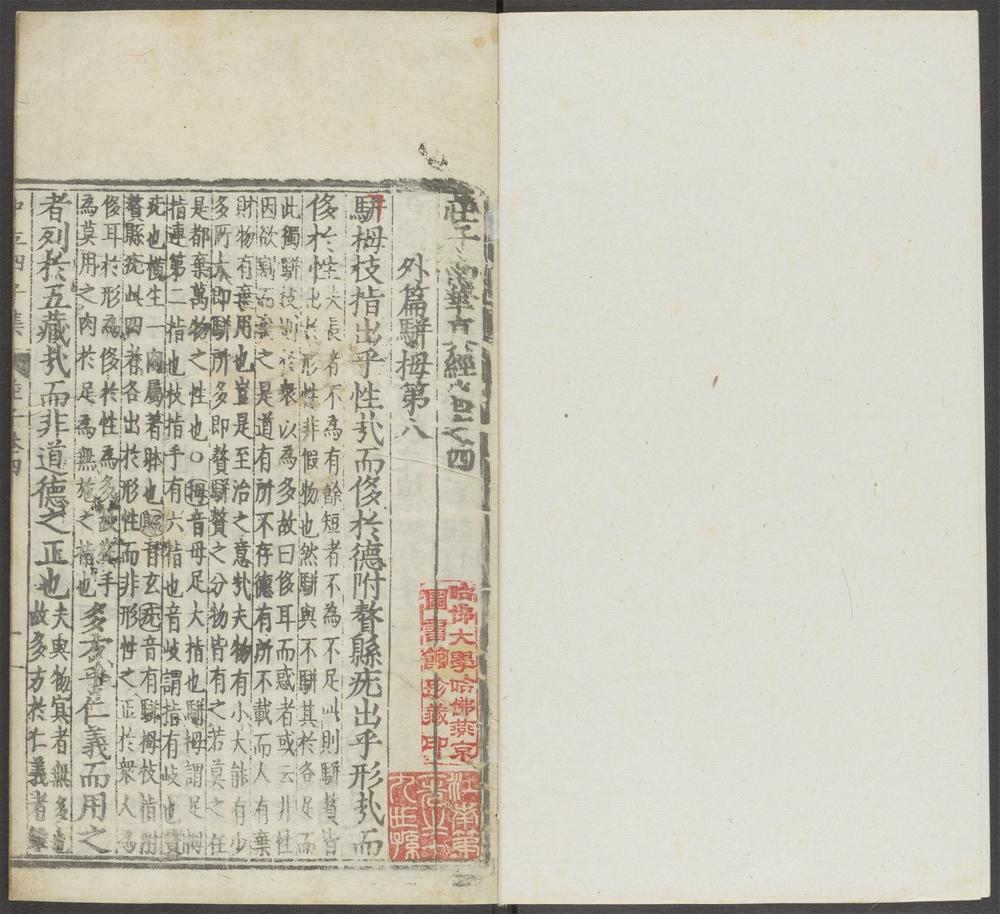 莊子南華真經卷之四
外篇駢拇第八
駢拇枝指出乎性哉而侈於德附贅縣疣出乎形哉而
侈於性夫長者不為有餘短者不為不足此則駢贅皆
出於形性非假物也然駢與不駢其於各足而
此獨駢枝則於衆以為多故曰侈耳而惑者或云非性
因欲割而棄之是道有所不存德有所不載而人有棄
財物有棄用也豈是至治之意哉夫物有小大能有少
多所大即駢所多即贅駢贅之分物皆有之若莫之任
是都棄萬物之性也○拇音母足大指也駢拇謂足拇
指連第二指也枝指手有六指也音岐謂指有岐也贅
疣也橫生一肉屬著體也縣音玄疣音有駢拇枝指附
贅縣疣此四者各出於形性而非形性之正於衆人為
侈耳於形為侈於性為多故在手
為莫用之肉於足為無施之指也多方乎仁義而用之
者列於五藏哉而非道德之正也夫與物冥者無多也
故多方於仁義者
莊子卷四
哈佛大學哈佛燕京
圖書館珍藏印